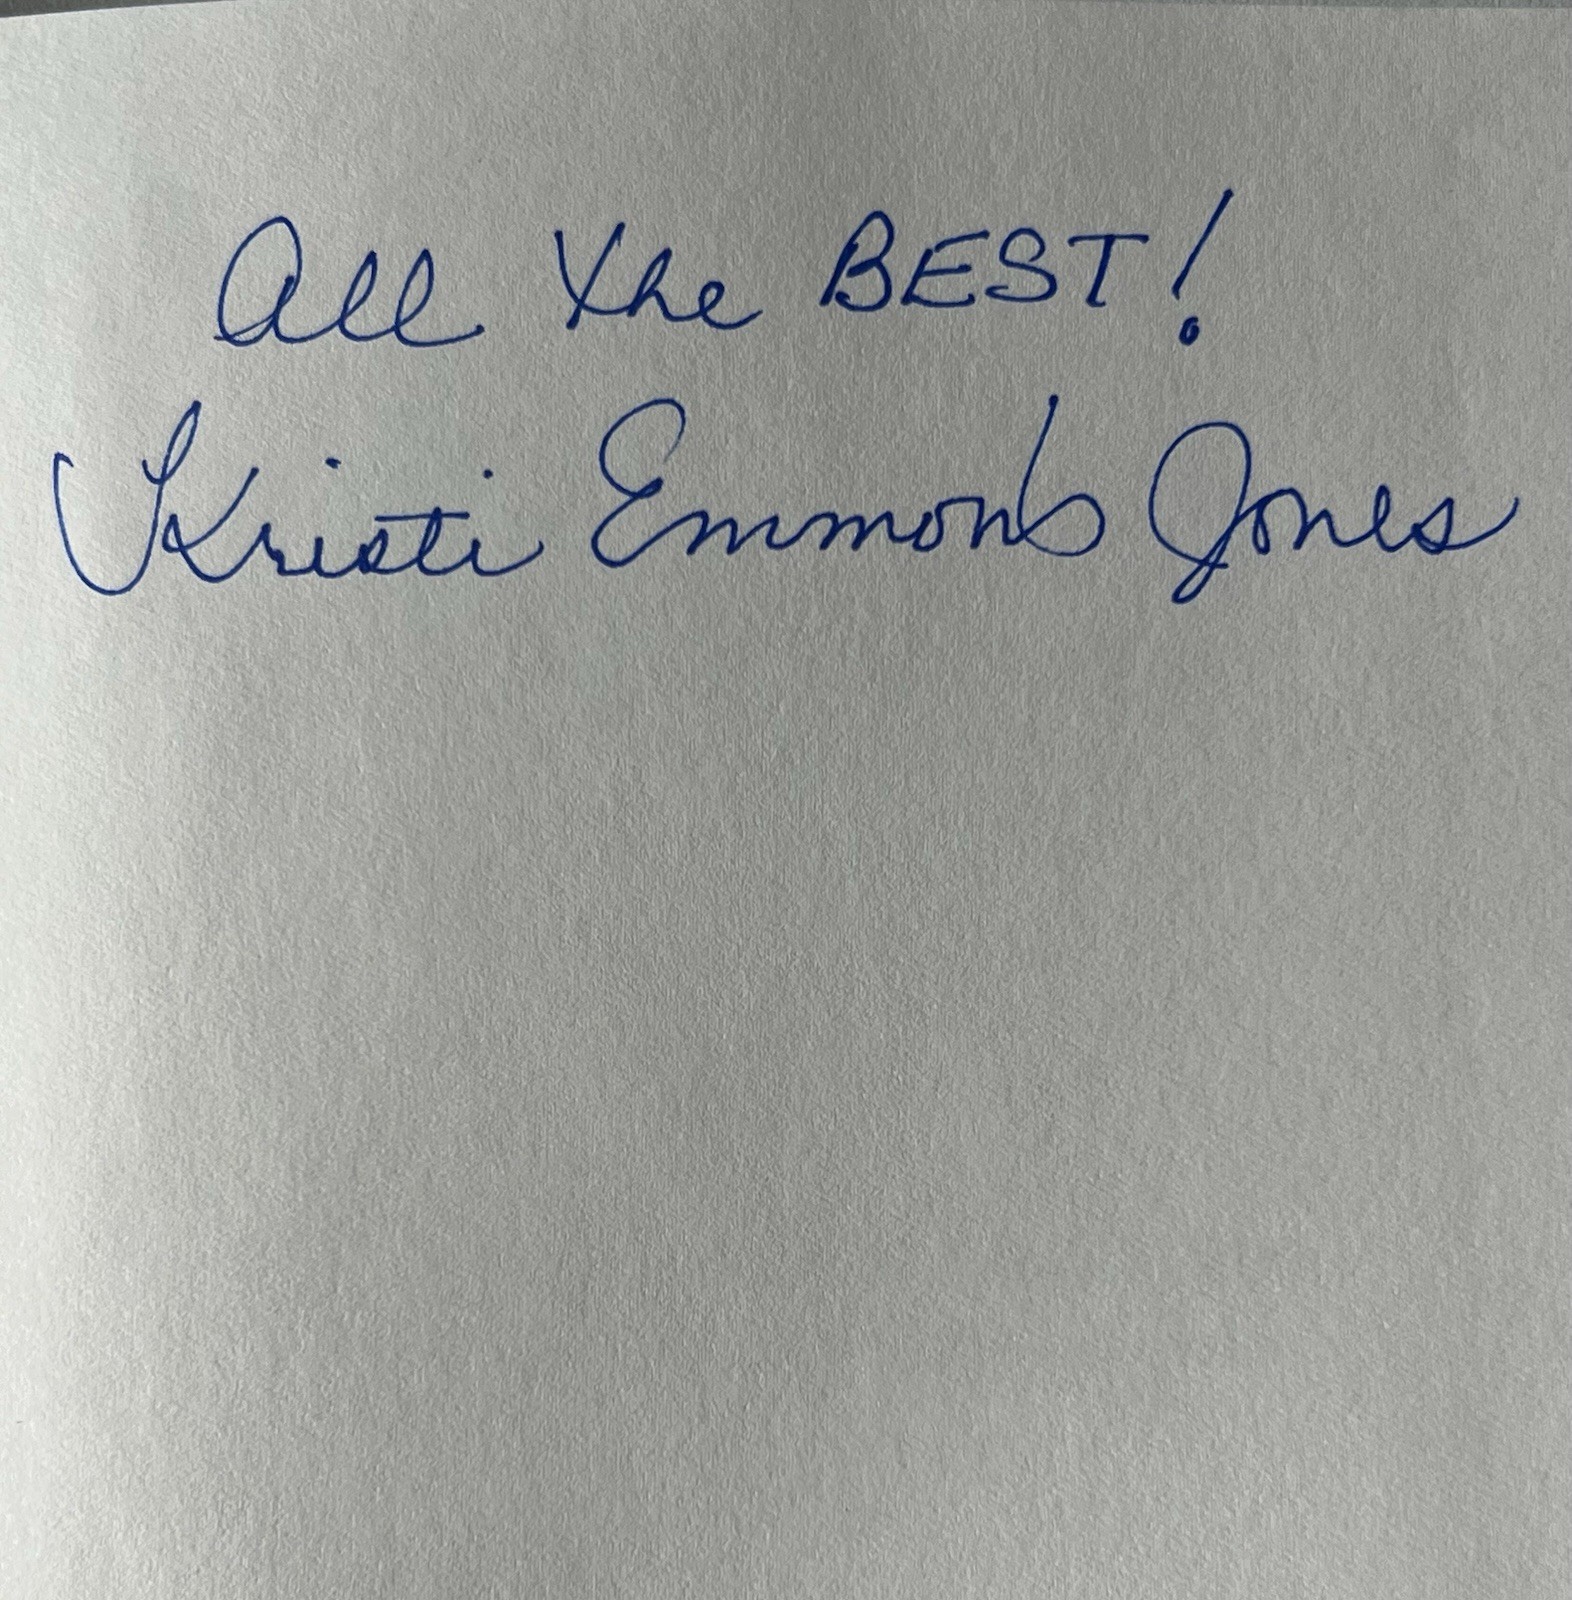 All the BEST!
Kristi Emmons Jones